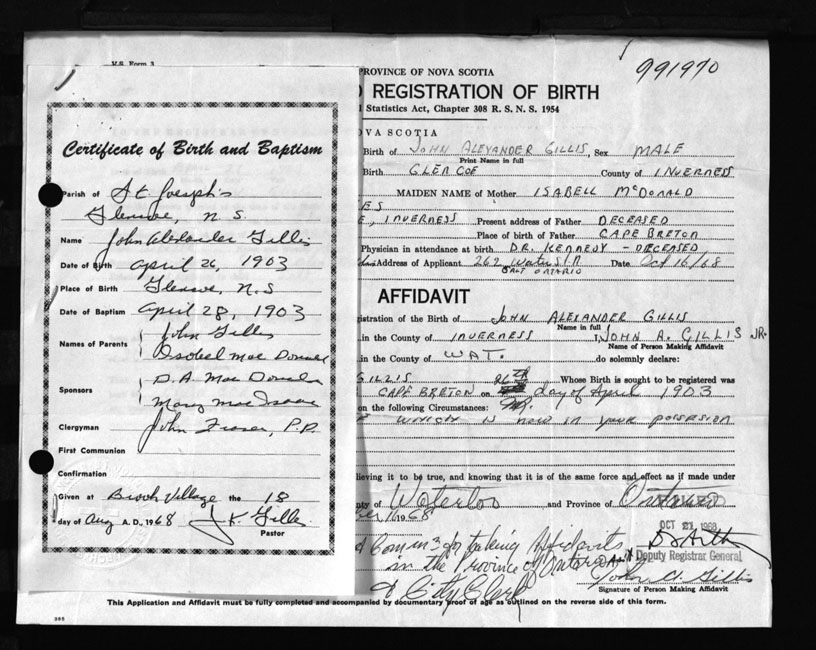 V.S. Form 3
Certificate of Birth and Baptism
Parish of St Joseph's
Glencoe, N.S.
Name John Alexander Gillis
Date of Birth April 26, 1903
Place of Birth Glencoe, N.S
Date of Baptism April 28, 1903
Names of Parents John Gillis
Isobel Mac Donald
Sponsors D.A. Mac Donald
Mary MacIsaac
Clergyman John Fraser, P.P.
First Communion
Confirmation
Given at Brook Village the 18
day of Aug A.D., 1968 J.K. Gillis
Pastor
991970
PROVINCE OF NOVA SCOTIA
REGISTRATION OF BIRTH
Statistics Act, Chapter 308 R. S. N. S. 1954
OVA SCOTIA
Birth of JOHN ALEXANDER GILLIS, Sex MALE
Print Name in full
Birth GLENCOE County of INVERNESS
MAIDEN NAME of Mother ISABELL McDONALD
ES
E, INVERNESS Present address of Father DECEASED
Place of birth of Father CAPE BRETON
Physician in attendance at birth DR. KENNEDY - DECEASED
Address of Applicant 262 WATER ST N Date Oct 16/68
GALT ONTARIO
AFFIDAVIT
istration of the Birth of JOHN ALEXANDER GILLIS
Name in full
in the County of INVERNESS I, JOHN A. GILLIS JR.
Name of Person Making Affidavit
in the County of WAT. do solemnly declare:
GILLIS 26th Whose Birth is sought to be registered was
CAPE BRETON on day of April 1903
on the following Circumstances:
WHICH IS NOW IN YOUR POSSESION
lieving it to be true, and knowing that it is of the same force and effect as if made under
ty of Waterloo and Province of Ontario
1968
OCT 21 1968
for taking Affidavits
in the Province of Ontario
Deputy Registrar General
& City Clerk
John A. Gillis
Signature of Person Making Affidavit
This Application and Affidavit must be fully completed and accompanied by documentary proof of age as outlined on the reverse side of this form.